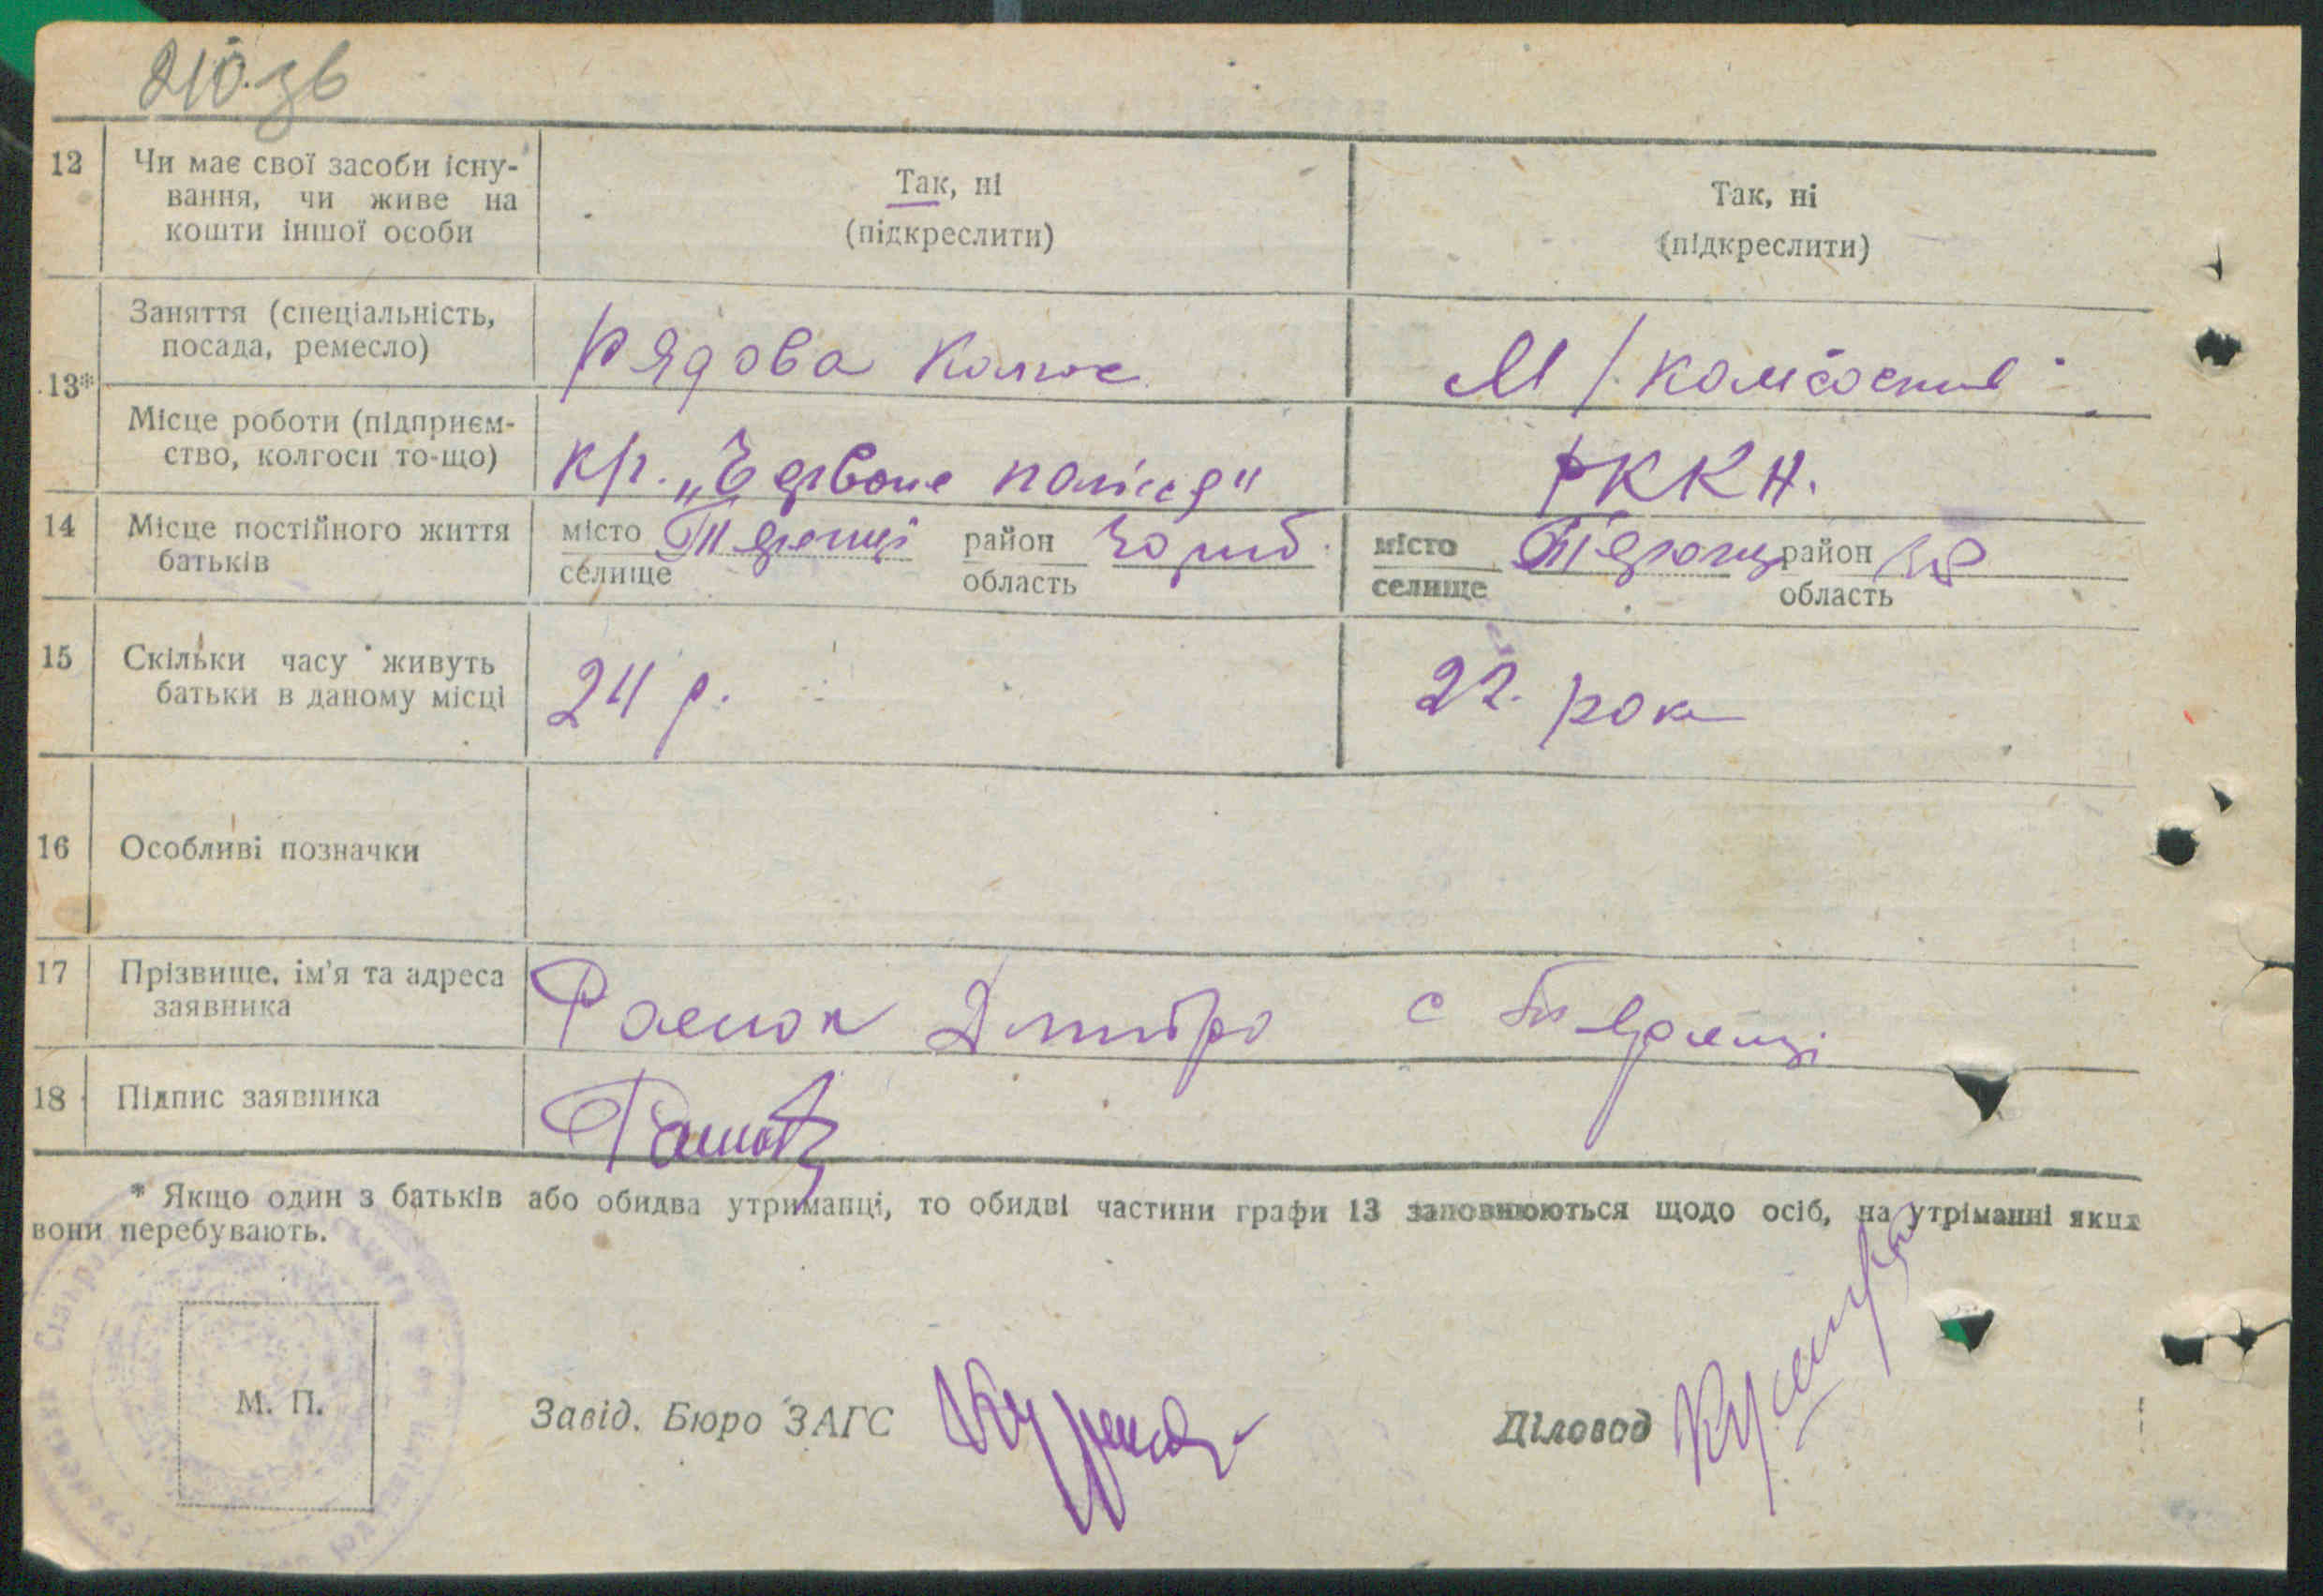 210. зв
12 Чи має свої засоби існу-
вання, чи живе на
кошти іншої особи
Так, ні
(підкреслити)
Так, ні
(підкреслити)
13*
Заняття (спеціальність,
посада, ремесло)
Рядова
М/
Місце роботи (підприєм-
ство, колгосп то-що)
К/г. „Червоне полісся"
РККА.
14 Місце постійного життя
батьків
місто
селище
район
область
місто
селище
район
область
15 Скільки часу живуть
батьки в даному місці
24 р.
22. рок
16 Особливі позначки
17 Прізвище, ім'я та адреса
заявника
Дмитро с
18 Підпис заявника
* Якщо один з батьків або обидва утриманці, то обидві частини графи 13 заповнюються щодо осіб, на утріманні яких
вони перебувають.
М. П.
Завід. Бюро ЗАГС
Діловод